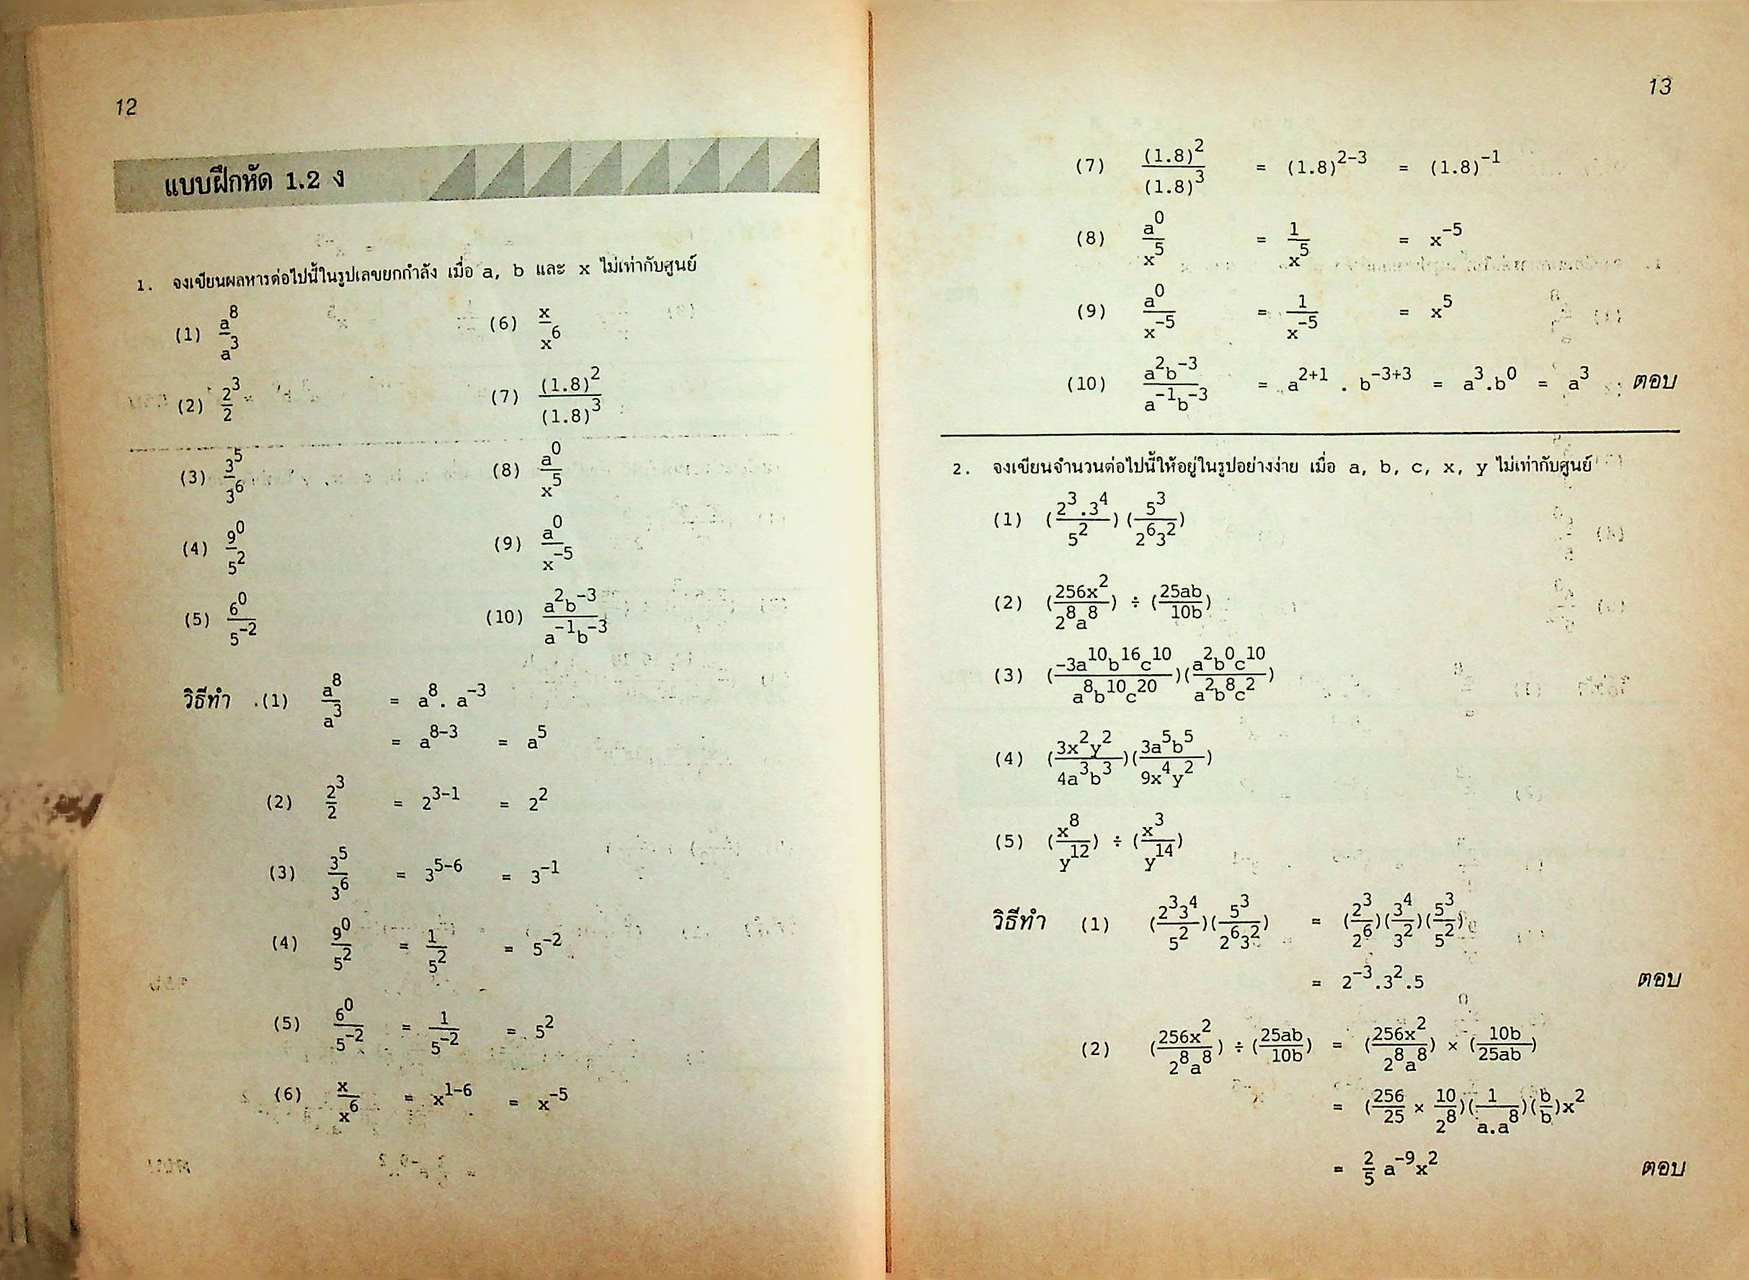 12
แบบฝึกหัด 1.2 ง
1. จงเขียนผลหารต่อไปนี้ในรูปเลขยกกำลัง เมื่อ a, b และ x ไม่เท่ากับศูนย์
(1) a⁸/a³ (6) x/x⁶
(2) 2³/2 (7) (1.8)²/(1.8)³
(3) 3⁵/3⁶ (8) a⁰/x⁵
(4) 9⁰/5² (9) a⁰/x⁻⁵
(5) 6⁰/5⁻² (10) a²b⁻³/a⁻¹b⁻³
วิธีทำ (1) a⁸/a³ = a⁸. a⁻³
= a⁸⁻³ = a⁵
(2) 2³/2 = 2³⁻¹ = 2²
(3) 3⁵/3⁶ = 3⁵⁻⁶ = 3⁻¹
(4) 9⁰/5² = 1/5² = 5⁻²
(5) 6⁰/5⁻² = 1/5⁻² = 5²
(6) x/x⁶ = x¹⁻⁶ = x⁻⁵
13
(7) (1.8)²/(1.8)³ = (1.8)²⁻³ = (1.8)⁻¹
(8) a⁰/x⁵ = 1/x⁵ = x⁻⁵
(9) a⁰/x⁻⁵ = 1/x⁻⁵ = x⁵
(10) a²b⁻³/a⁻¹b⁻³ = a²⁺¹ . b⁻³⁺³ = a³.b⁰ = a³ ตอบ
2. จงเขียนจำนวนต่อไปนี้ให้อยู่ในรูปอย่างง่าย เมื่อ a, b, c, x, y ไม่เท่ากับศูนย์
(1) (2³.3⁴/5²)(5³/2⁶3²)
(2) (256x²/2⁸a⁸) ÷ (25ab/10b)
(3) (-3a¹⁰b¹⁶c¹⁰/a⁸b¹⁰c²⁰)(a²b⁰c¹⁰/a²b⁸c²)
(4) (3x²y²/4a³b³)(3a⁵b⁵/9x⁴y²)
(5) (x⁸/y¹²) ÷ (x³/y¹⁴)
วิธีทำ (1) (2³3⁴/5²)(5³/2⁶3²) = (2³/2⁶)(3⁴/3²)(5³/5²)
= 2⁻³.3².5 ตอบ
(2) (256x²/2⁸a⁸) ÷ (25ab/10b) = (256x²/2⁸a⁸) × (10b/25ab)
= (256/25 × 10/2⁸)(1/a.a⁸)(b/b)x²
= 2/5 a⁻⁹x² ตอบ